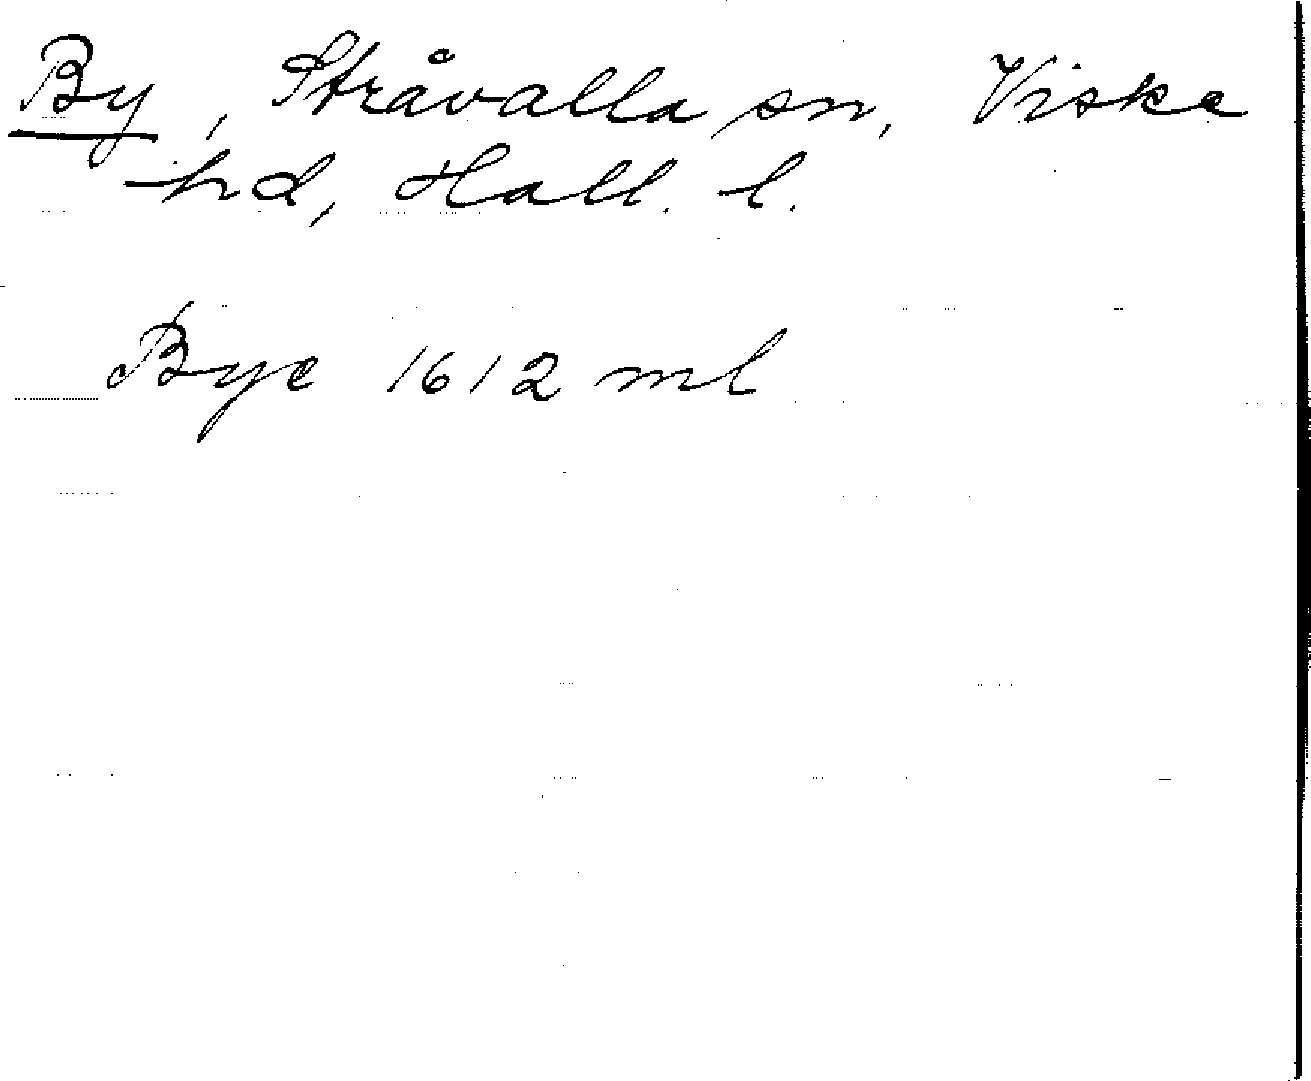 By, Stråvalla sn, Viske
hd, Hall. l.
Bye 1612 ml